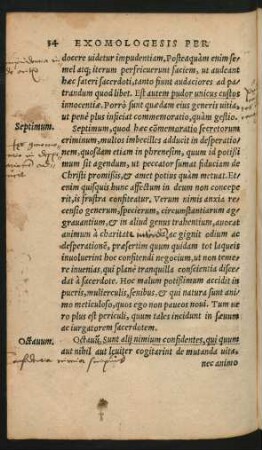 84 EXOMOLOGESIS PER
docere uidetur impudentiam. Posteaquàm enim se-
mel atq; iterum perfricuerunt faciem, ut audeant
hæc fateri sacerdoti, tanto fiunt audaciores ad pa-
trandum quod libet. Est autem pudor unicus custos
innocentiæ. Porrò sunt quædam eius generis uitia,
ut penè plus inficiat commemoratio, quàm gestio.
Septimum.
Septimum, quod hæc cōmemoratio secretorum
criminum, multos imbecilles adducit in desperatio
nem, quosdam etiam in phrenesim, quum id potissi
mum sit agendum, ut peccator sumat fiduciam de
Christi promissis, & amet potius quàm metuat. Et-
enim quisquis hunc affectum in deum non concepe
rit, is frustra confitetur. Verum nimis anxia re-
censio generum, specierum, circumstantiarum ag-
grauantium, & in aliud genus trahentium, auocat
animum à charitate, ac gignit odium ac
desperationē, præsertim quum quidam tot laqueis
inuoluerint hoc confitendi negocium, ut non temere
reinuenias, qui planè tranquilla conscientia disce-
dat à sacerdote. Hoc malum potissimum accidit in
pueris, mulierculis, senibus, & qui natura sunt ani-
mo meticuloso, quos ego non paucos noui. Tum ue-
ro plus est periculi, quum tales incidunt in sæuum
ac iurgatorem sacerdotem.
Octauum.
Octauū. Sunt alij nimium confidentes, qui quum
aut nihil aut leuiter cogitarint de mutanda uita,
nec animo